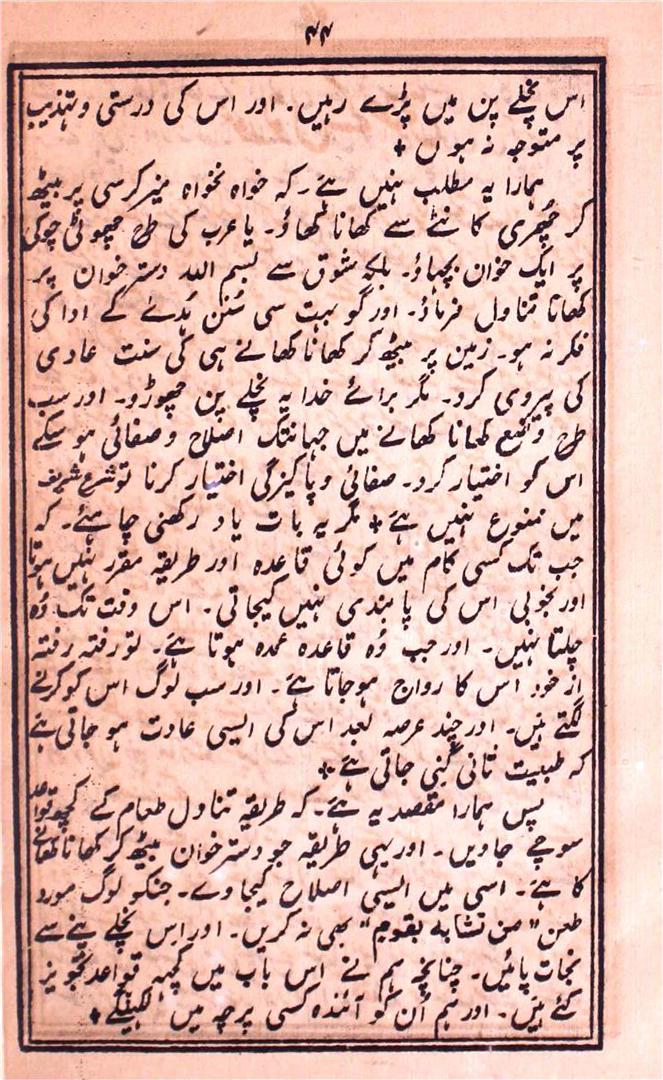 ۴۴
اس نچلے پن میں پڑے رہیں۔ اور اس کی درستی و تہذیب
پر متوجہ نہ ہوں +
ہمارا یہ مطلب نہیں ہے۔ کہ خواہ نخواہ میز کرسی پر بیٹھ
کر چُھری کانٹے سے کھانا کھاؤ۔ یا عرب کی طرح چھوٹی چوکی
پر ایک خوان بچھاؤ۔ بلکہ شوق سے بسم اللہ دسترخوان پر
کھانا تناول فرماؤ۔ اور گو بہت سی سُنن ہُدےٰ کے ادا کی
فکر نہ ہو۔ زمین پر بیٹھ کر کھانا کھانے ہی کی سنت عادی
کی پیروی کرو۔ مگر برائے خدا یہ نچلے پن چھوڑو۔ اور سب
طرح وضع کھانا کھانے میں جہانتک اصلاح و صفائی ہو سکے
اس کو اختیار کرو۔ صفائی و پاکیزگی اختیار کرنا تو شرع شریف
میں ممنوع نہیں ہے + مگر یہ بات یاد رکھنی چاہئے۔ کہ
جب تک کسی کام میں کوئی قاعدہ اور طریقہ مقرر نہیں ہوتا
اور بخوبی اس کی پابندی نہیں کیجاتی۔ اس وقت تک وُہ
چلتا نہیں۔ اور جب وُہ قاعدہ عمدہ ہوتا ہے۔ تو رفتہ رفتہ
از خود اس کا رواج ہوجاتا ہے۔ اور سب لوگ اس کو کرنے
لگتے ہیں۔ اور چند عرصہ بعد اس کی ایسی عادت ہو جاتی ہے
کہ طبیعت ثانی گنی جاتی ہے +
پس ہمارا مقصد یہ ہے۔ کہ طریقہ تناول طعام کے کچھ قواعد
سوچے جاویں۔ اور یہی طریقہ جو دسترخوان بیٹھ کر کھانا کھانے
کا ہے۔ اسی میں ایسی اصلاح کیجاوے۔ جنکو لوگ مورد
طعن "من تشابہ بقوم" بھی نہ کریں۔ اور اس نچلے پنے سے
نجات پائیں۔ چنانچہ ہم نے اس باب میں کچہہ قواعد تجویز
کئے ہیں۔ اور ہم اُن کو آئندہ کسی پرچہ میں لکھینگے +